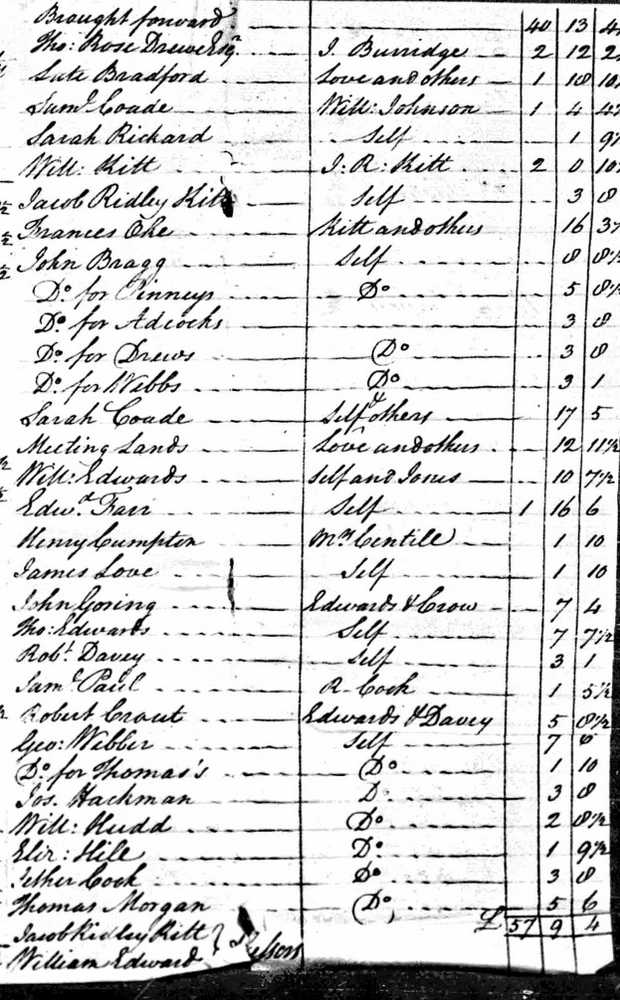 Brought forward 40 13 4
Tho: Rose Drewe Esqr. J. Burridge 2 12 2
Late Bradford Love and others 1 18 10
Saml. Coade Will: Johnson 1 4 4
Sarah Rickard Self 1 9
Will: Kitt J: R: Kitt 2 0 10
Jacob Ridley Kitt Self 3 8
Frances Oke Kitt and others 16 3
John Bragg Self 8 8½
Do. for Pinneys Do 5 8½
Do. for Adcocks 3 8
Do. for Drews Do 3 8
Do. for Webbs Do 3 1
Sarah Coade Self & others 17 5
Meeting Lands Love and others 12 11½
Will: Edwards Self and Jones 10 7½
Edwd. Farr Self 1 16 6
Henry Cumpton Mr. Gentile 1 10
James Love Self 1 10
John Goring Edwards & Crow 7 4
Tho: Edwards Self 7 7½
Robt. Davey Self 3 1
Saml. Paul R. Cock 1 5½
Robert Crout Edwards & Davey 5 8½
Geo: Webber Self 7 6
Do. for Thomas's Do 1 10
Jos. Hackman D. 3 8
Will: Hudd Do 2 8½
Eliz: Hill Do 1 9½
Cock Do 3 8
Thomas Morgan Do 5 6
£ 57 9 4
Jacob Ridley Kitt
William Edward